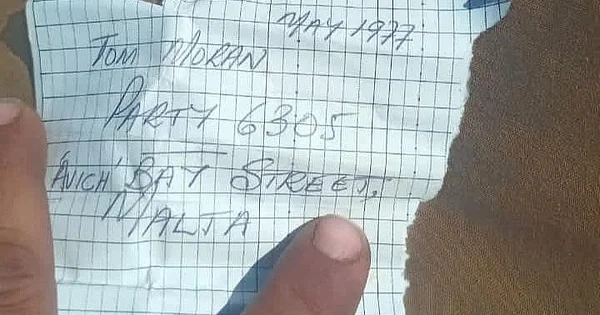 MAY 1977
TOM MORAN
PARTY 6305
BAY STREET,
MALTA